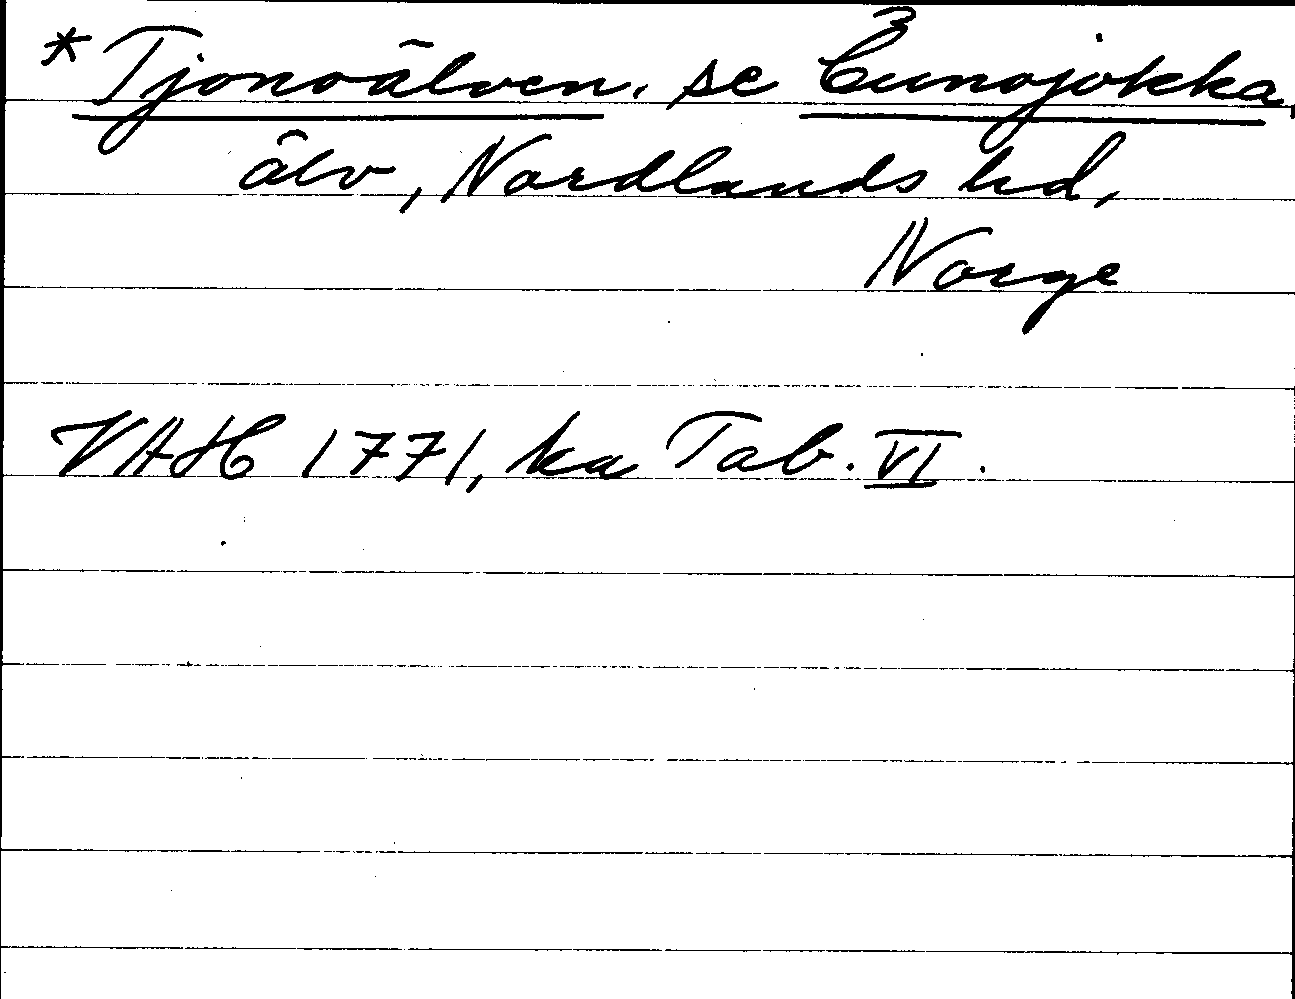 * Tjonoälven, se Čunojokka,
älv, Nordlands hd,
Norge
VAH 1771, ka Tab. VI.